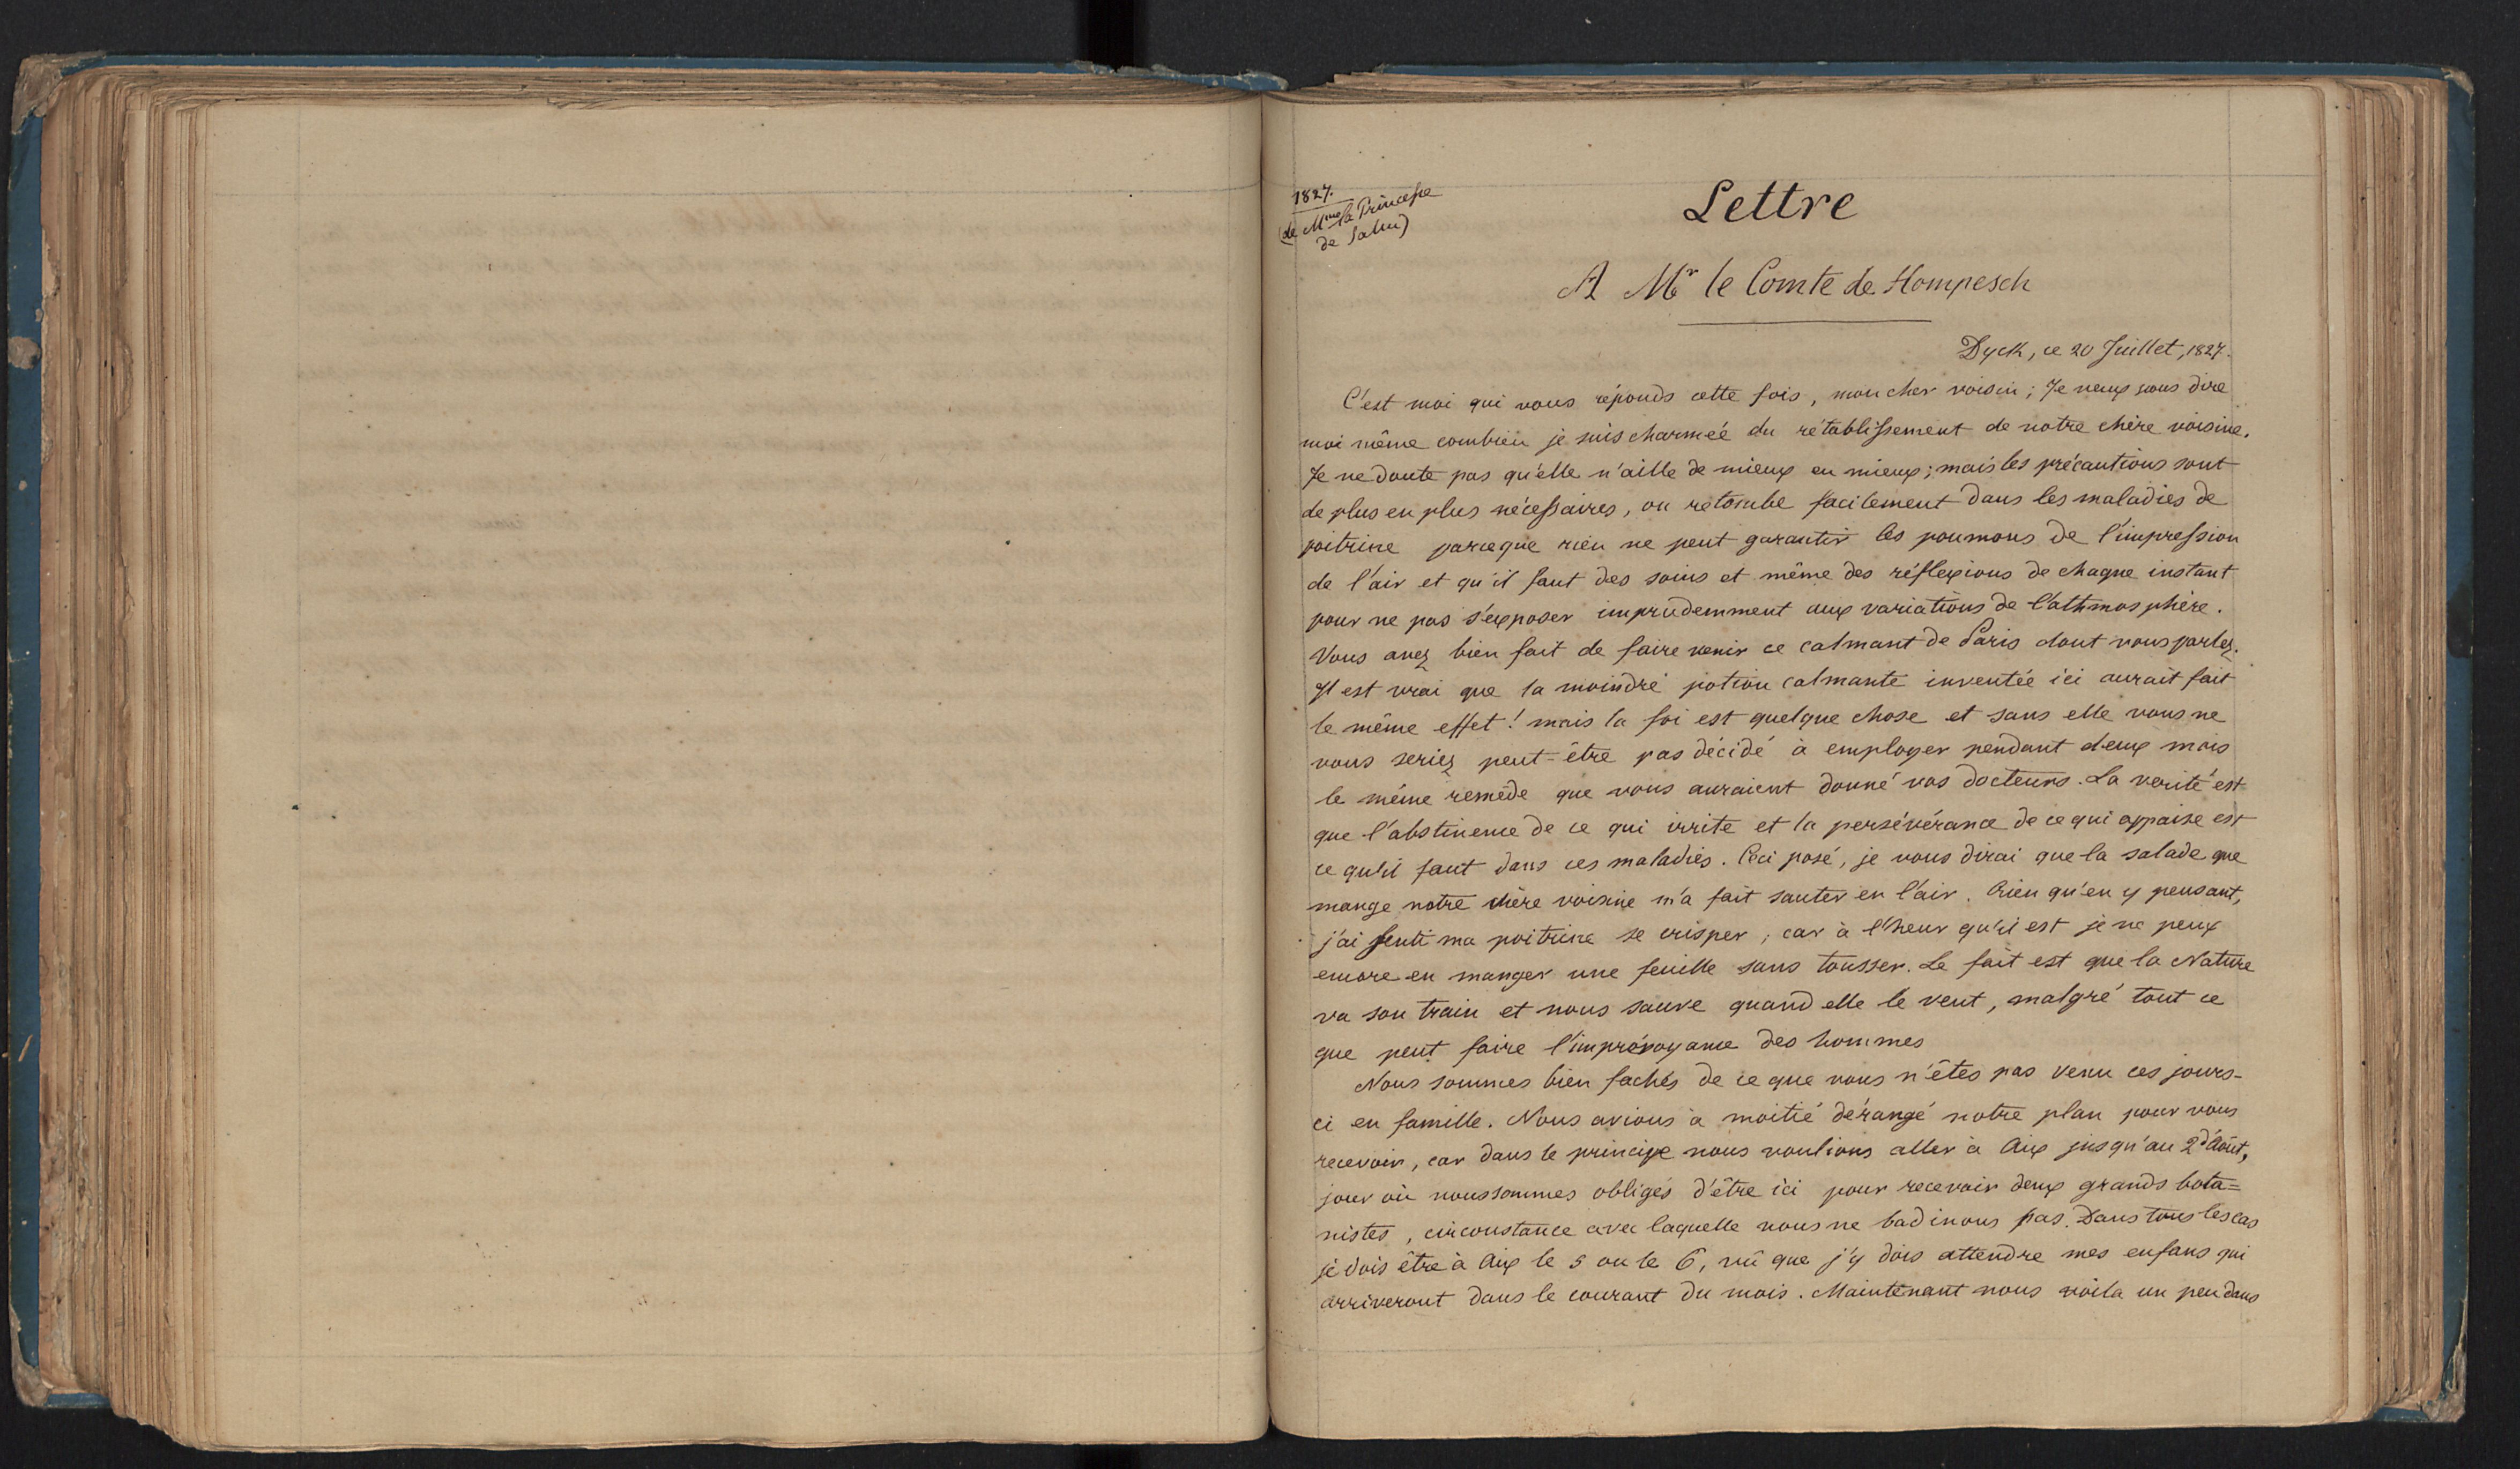 1827.
(de Mme la Princesse
de Salm)
Lettre
A Mr le Comte de Hompesch
Dyck, ce 20 Juillet, 1827.
C'est moi qui vous réponds cette fois, mon cher voisin; Je veux vous dire
moi même combien je suis charmée du rétablissement de notre chère voisine.
Je ne doute pas qu'elle n'aille de mieux en mieux; mais les précautions sont
de plus en plus nécessaires, on retombe facilement dans les maladies de
poitrine parceque rien ne peut garantir les poumons de l'impression
de l'air et qu'il faut des soins et même des réflexions de chaque instant
pour ne pas s'exposer imprudemment aux variations de l'athmosphère.
Vous avez bien fait de faire venir ce calmant de Paris dont vous parlez.
Il est vrai que la moindre potion calmante inventée ici aurait fait
le même effet! mais la foi est quelque chose et sans elle vous ne
vous seriez peut-être pas décidé à employer pendant deux mois
le même remède que vous auraient donné vos docteurs. La verité est
que l'abstinence de ce qui irrite et la persévérance de ce qui appaise est
ce qu'il faut dans ces maladies. Ceci posé, je vous dirai que la salade que
mange notre chère voisine m'a fait sauter en l'air. Rien qu'en y pensant,
j'ai senti ma poitrine se crisper, car à l'heur qu'il est je ne peux
encore en manger une feuille sans tousser. Le fait est que la Nature
va son train et nous sauve quand elle le veut, malgré tout ce
que peut faire l'imprévoyance des hommes
Nous sommes bien fachés de ce que vous n'êtes pas venu ces jours-
ci en famille. Nous avions à moitié dérangé notre plan pour vous
recevoir, car dans le principe nous voulions aller à Aix jusqu'au 2 d'Août,
jour où nous sommes obligés d'être ici pour recevoir deux grands bota=
nistes, circonstance avec laquelle nous ne badinons pas. Dans tous les cas
je dois être à Aix le 5 ou le 6, vû que j'y dois attendre mes enfans qui
arriveront dans le courant du mois. Maintenant nous voila un peu dans